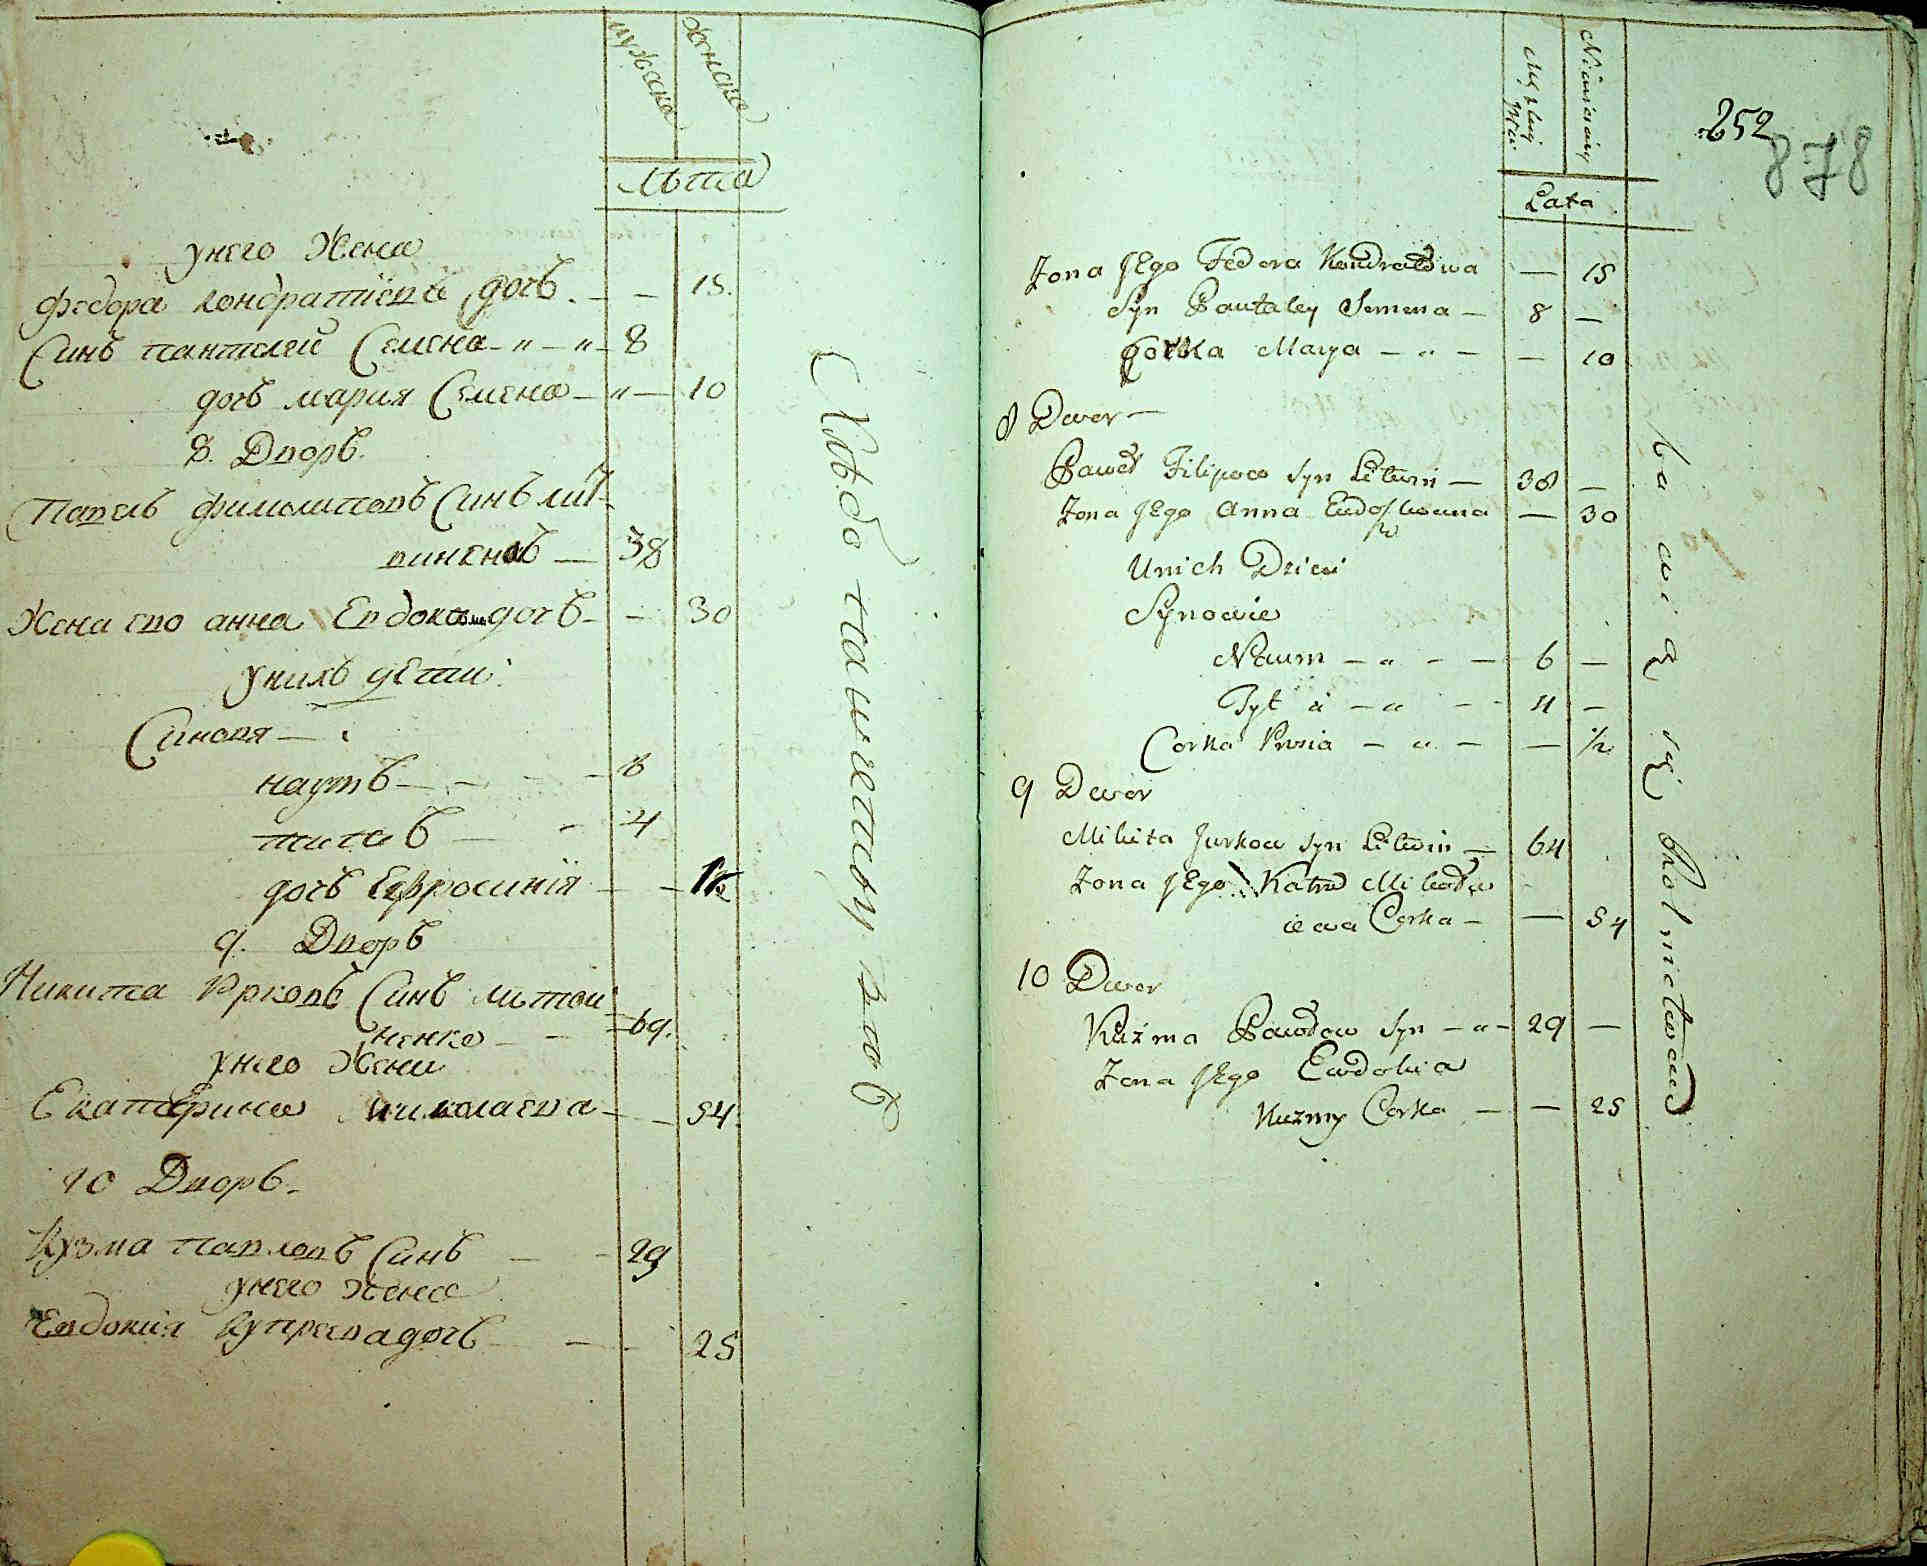 мужска
женска
Лѣта
унего Жена
Федора кондратїева дочъ. — — 15.
Синъ пантилей Семена — " — " — 8
дочъ мария Семена — " — 10
8. Дворъ.
Павелъ Филиповъ Синъ лит-
виненъ — 38
Жена его анна Евдоким дочъ — — 30
унихъ дѣти:
Синовя —
наумъ — — 6
титъ — 4
дочъ Евфросинїя — — 1/2
9. Дворъ
Никита Юрковъ Синъ литви
ненко — — 69.
унего Жена
Екатерина николаева — — 54.
10 Дворъ.
Кузма павловъ Синъ — — 29
унего Жена
Евдокия Купрева дочъ — — 25
Хлѣбо пашеству ютъ
252
878
Męzkiej
Płci
Niewieściey
Lata
Żona Jego Fedora Kondratowa — 15
Syn Pantaley Semena — 8 —
Corka Marya — " — — 10
8 Dwor —
Paweł Filipow Syn Litwin — 38 —
Żona Jego Anna Ewdo — 30
Unich Dzieci
Synowie
Naum — " — — 6 —
Tyt a — " — — 4 —
Corka Prusia — " — — 1/2
9 Dwor
Mikita Jurkow Syn Litwin — 64
Żona Jego Katra Mikoła
iewa Corka — — 54
10 Dwor
Kuźma Pawłow Syn — " — 29 —
Żona Jego Ewdokia
Kuzmy Corka — — 25
bawią się Rolnictwem